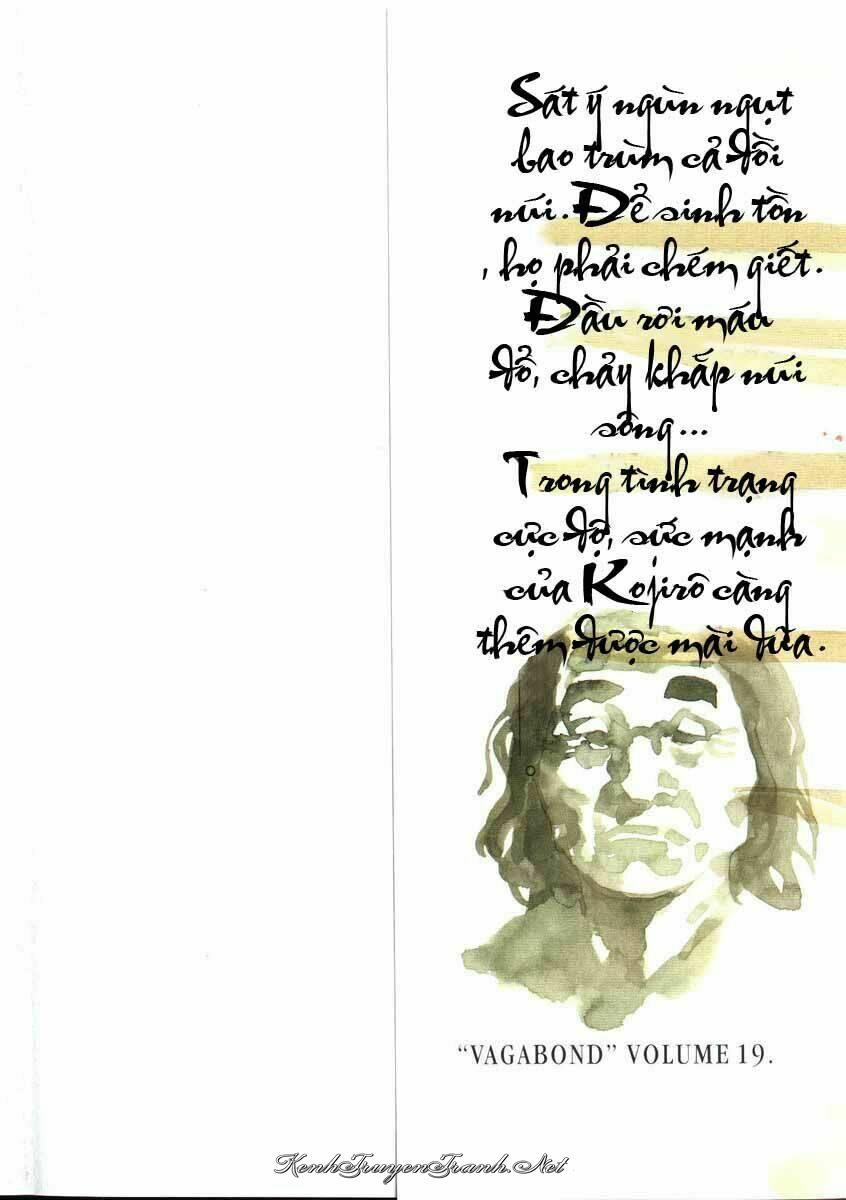 Sát ý ngùn ngụt
bao trùm cả đồi
núi. Để sinh tồn
, họ phải chém giết.
Đầu rơi máu
đổ, chảy khắp núi
sông...
Trong tình trạng
cực độ, sức mạnh
của Kojirô càng
thêm được mài dũa.
“VAGABOND” VOLUME 19.
KenhTruyenTranh.Net